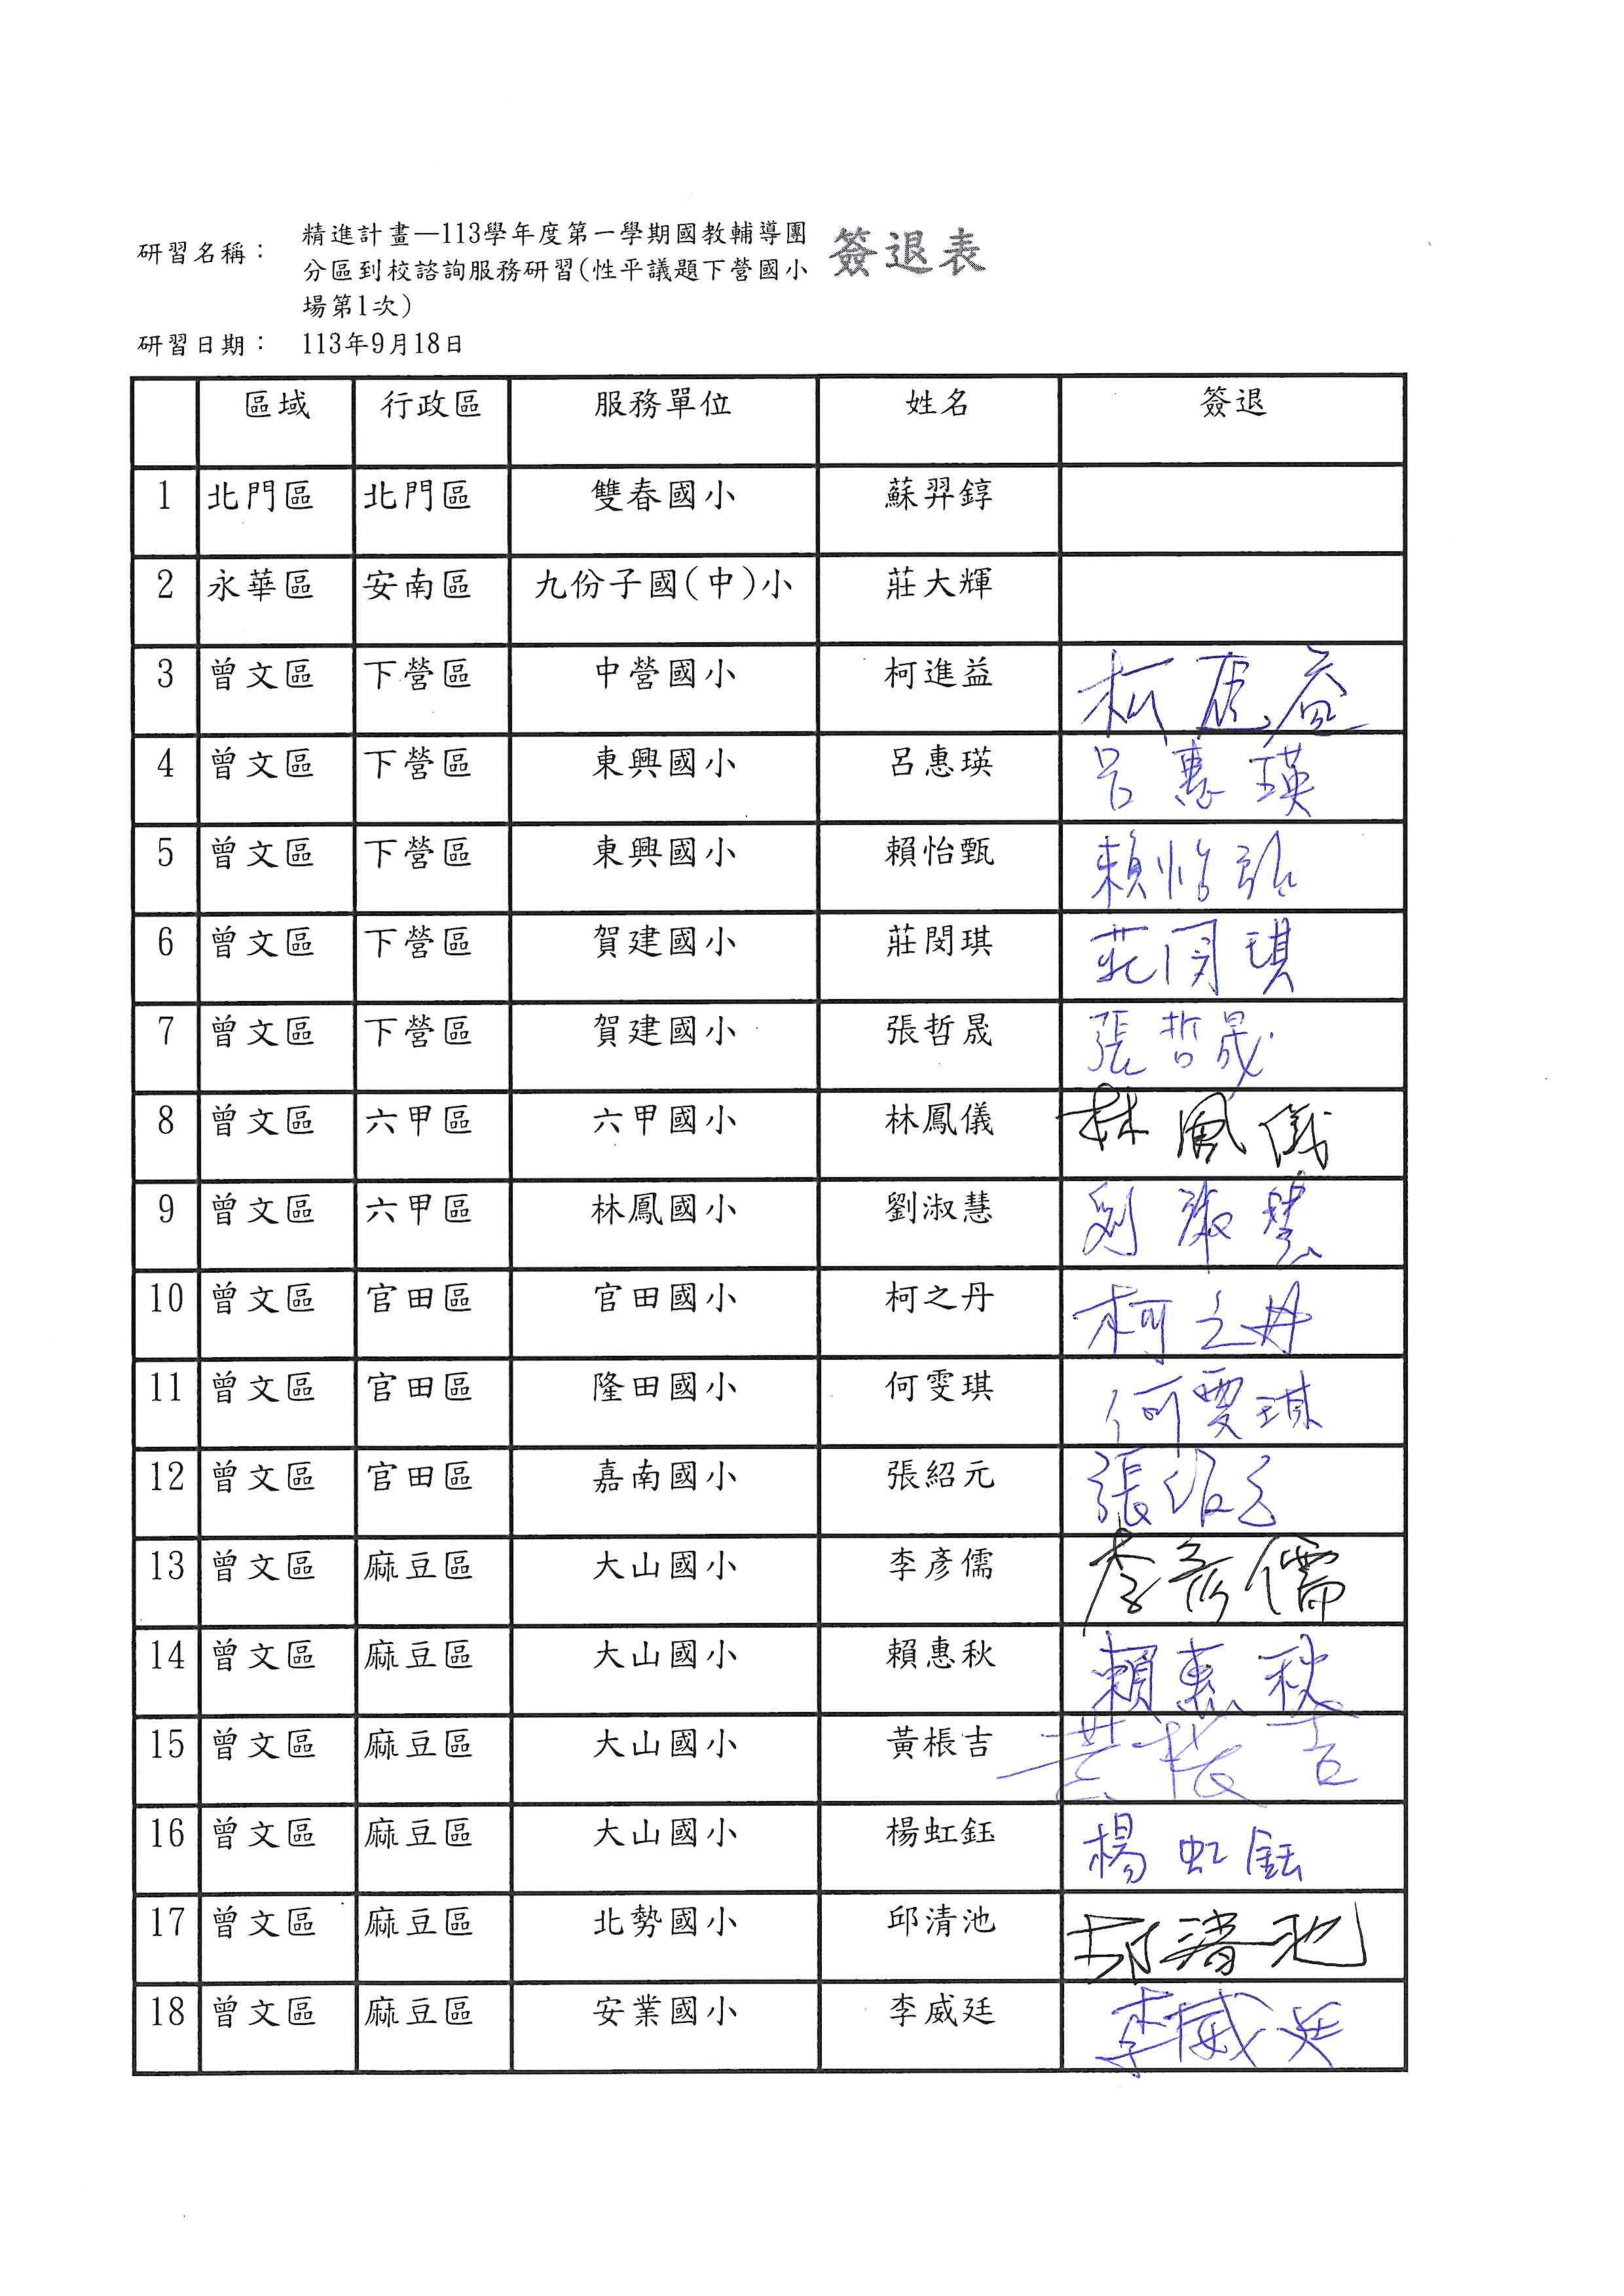 研習名稱： 精進計畫—113學年度第一學期國教輔導團 簽退表
分區到校諮詢服務研習(性平議題下營國小
場第1次)
研習日期： 113年9月18日
區域 行政區 服務單位 姓名 簽退
1 北門區 北門區 雙春國小 蘇羿錞
2 永華區 安南區 九份子國(中)小 莊大輝
3 曾文區 下營區 中營國小 柯進益 柯進益
4 曾文區 下營區 東興國小 呂惠瑛 呂惠瑛
5 曾文區 下營區 東興國小 賴怡甄 賴怡
6 曾文區 下營區 賀建國小 莊閔琪 莊閔琪
7 曾文區 下營區 賀建國小 張哲晟 張哲晟
8 曾文區 六甲區 六甲國小 林鳳儀 林鳳儀
9 曾文區 六甲區 林鳳國小 劉淑慧 劉淑慧
10 曾文區 官田區 官田國小 柯之丹 柯之丹
11 曾文區 官田區 隆田國小 何雯琪 何雯琪
12 曾文區 官田區 嘉南國小 張紹元 張紹元
13 曾文區 麻豆區 大山國小 李彥儒 李彥儒
14 曾文區 麻豆區 大山國小 賴惠秋 賴惠秋
15 曾文區 麻豆區 大山國小 黃棖吉 黃棖吉
16 曾文區 麻豆區 大山國小 楊虹鈺 楊虹鈺
17 曾文區 麻豆區 北勢國小 邱清池 邱清池
18 曾文區 麻豆區 安業國小 李威廷 李威廷